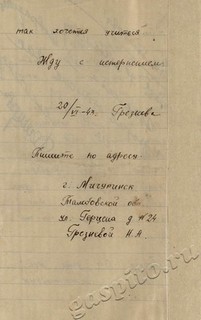 так хочется учиться.
Жду с нетерпением.
20/VI-44. Грознева
Пишите по адресу:
г. Мичуринск
Тамбовской обл.
ул. Герцена д №24
Грозневой Н.А.
gaspito.ru